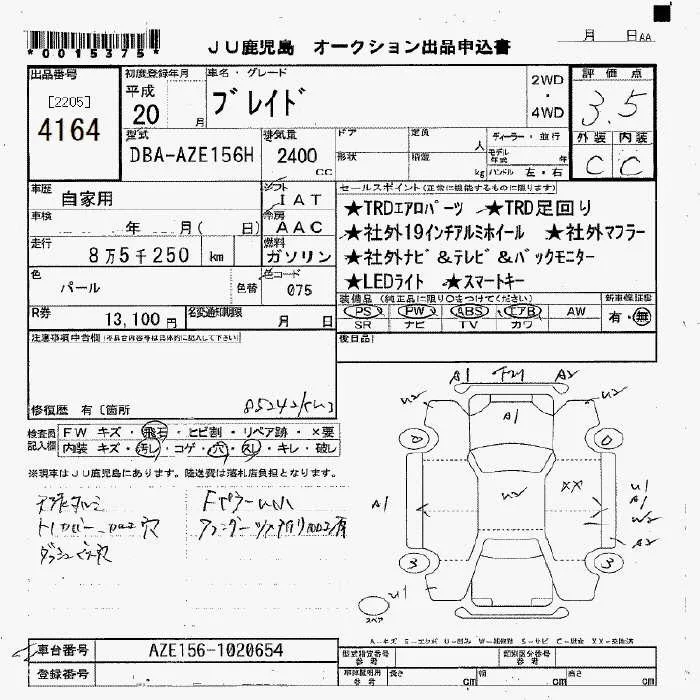 *0015375*
JU鹿児島 オークション出品申込書
月 日 AA
出品番号
[2205]
4164
初度登録年月
平成
20 月
車名・グレード
ブレイド
2WD
・
4WD
評価点
3.5
外装 内装
C C
型式
DBA-AZE156H
排気量
2400
CC
ドア
定員
人
ディーラー・並行
形状
積載
kg
モデル年式 年
ハンドル 左・右
車歴
自家用
シフト
IAT
車検
年 月( 日)
冷房
AAC
走行
8万5千250 km
燃料
ガソリン
色
パール
色替
色コード
075
R券
13,100 円
名変通知期限
月 日
セールスポイント(正常に機能するものに限ります)
★TRDエアロパーツ ★TRD足回り
★社外19インチアルミホイール ★社外マフラー
★社外ナビ&テレビ&バックモニター
★LEDライト ★スマートキー
装備品(純正品に限り○をつけてください)
PS PW ABS エアB AW
SR ナビ TV カワ
新車保証書
有・無
注意事項申告欄(不具合内容等は具体的に記入して下さい)
後日品
修復歴 有〔箇所
85242km
検査員
記入欄
FW キズ・飛石・ヒビ割・リペア跡・×要
内装 キズ・汚レ・コゲ・穴・スレ・キレ・破レ
※現車はJU鹿児島にあります。陸送費は落札店負担となります。
ダッシュビス穴
A1 A2
U2 U2
A1
0 0
A1 U2 XX
U1
A1
W2
A2
3 3
U1
スペア
A-キズ E-エクボ U-凹み W-補修跡 S-サビ C-腐食 XX-交換済
車台番号
AZE156-1020654
登録番号
型式指定番号
参考
類別区分番号
参考
車庫証明用
参考
長さ cm
幅 cm
高さ cm